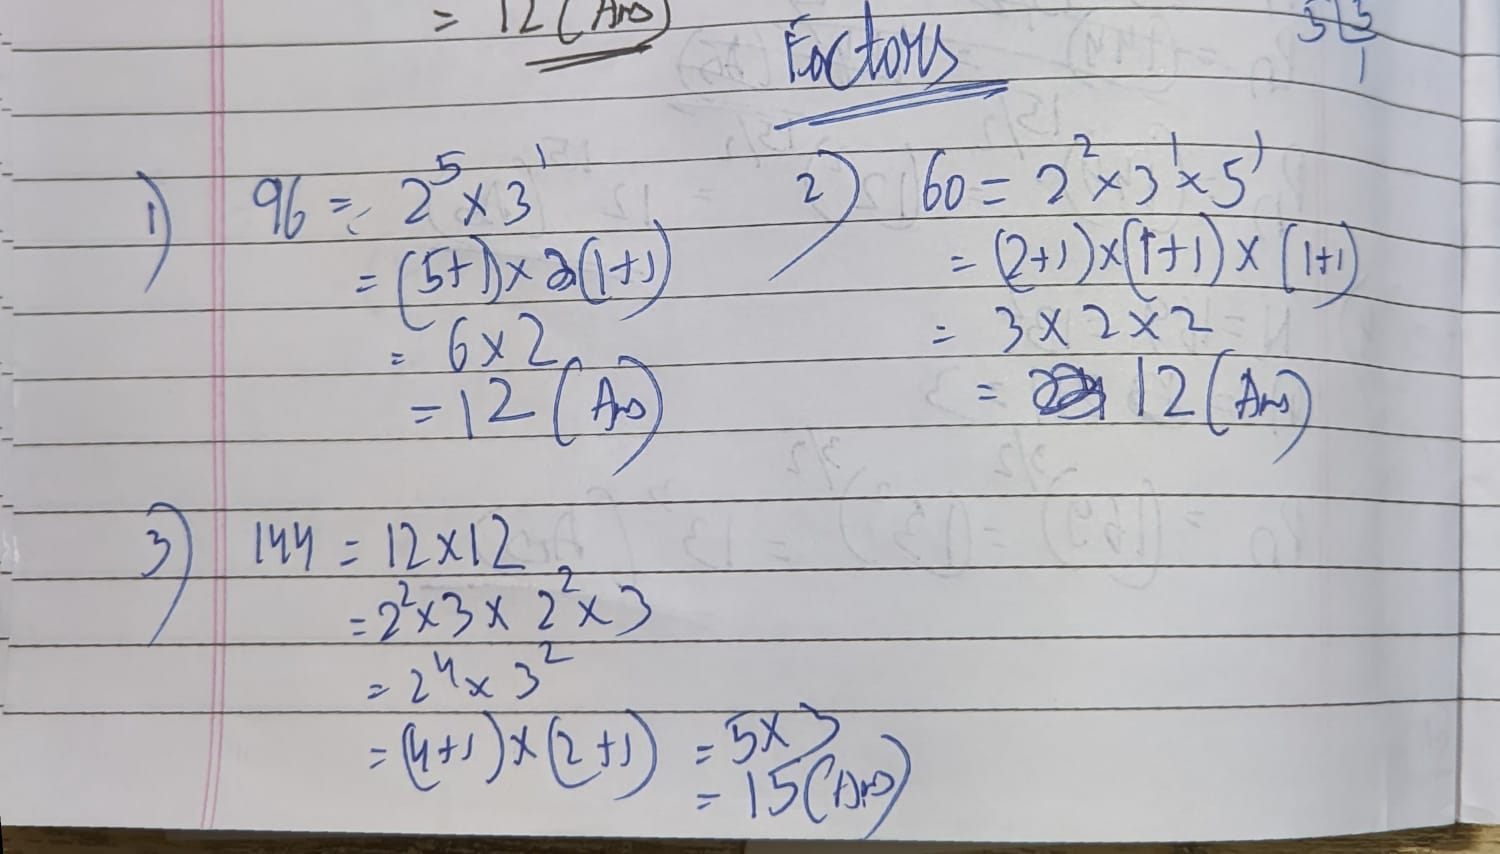 = 12 (Ans)
5 | 5
1
Factors
1) 96 = 2⁵ × 3¹
= (5+1) × (1+1)
= 6 × 2
= 12 (Ans)
2) 60 = 2² × 3¹ × 5¹
= (2+1) × (1+1) × (1+1)
= 3 × 2 × 2
= 12 (Ans)
3) 144 = 12 × 12
= 2² × 3 × 2² × 3
= 2⁴ × 3²
= (4+1) × (2+1) = 5 × 3
= 15 (Ans)